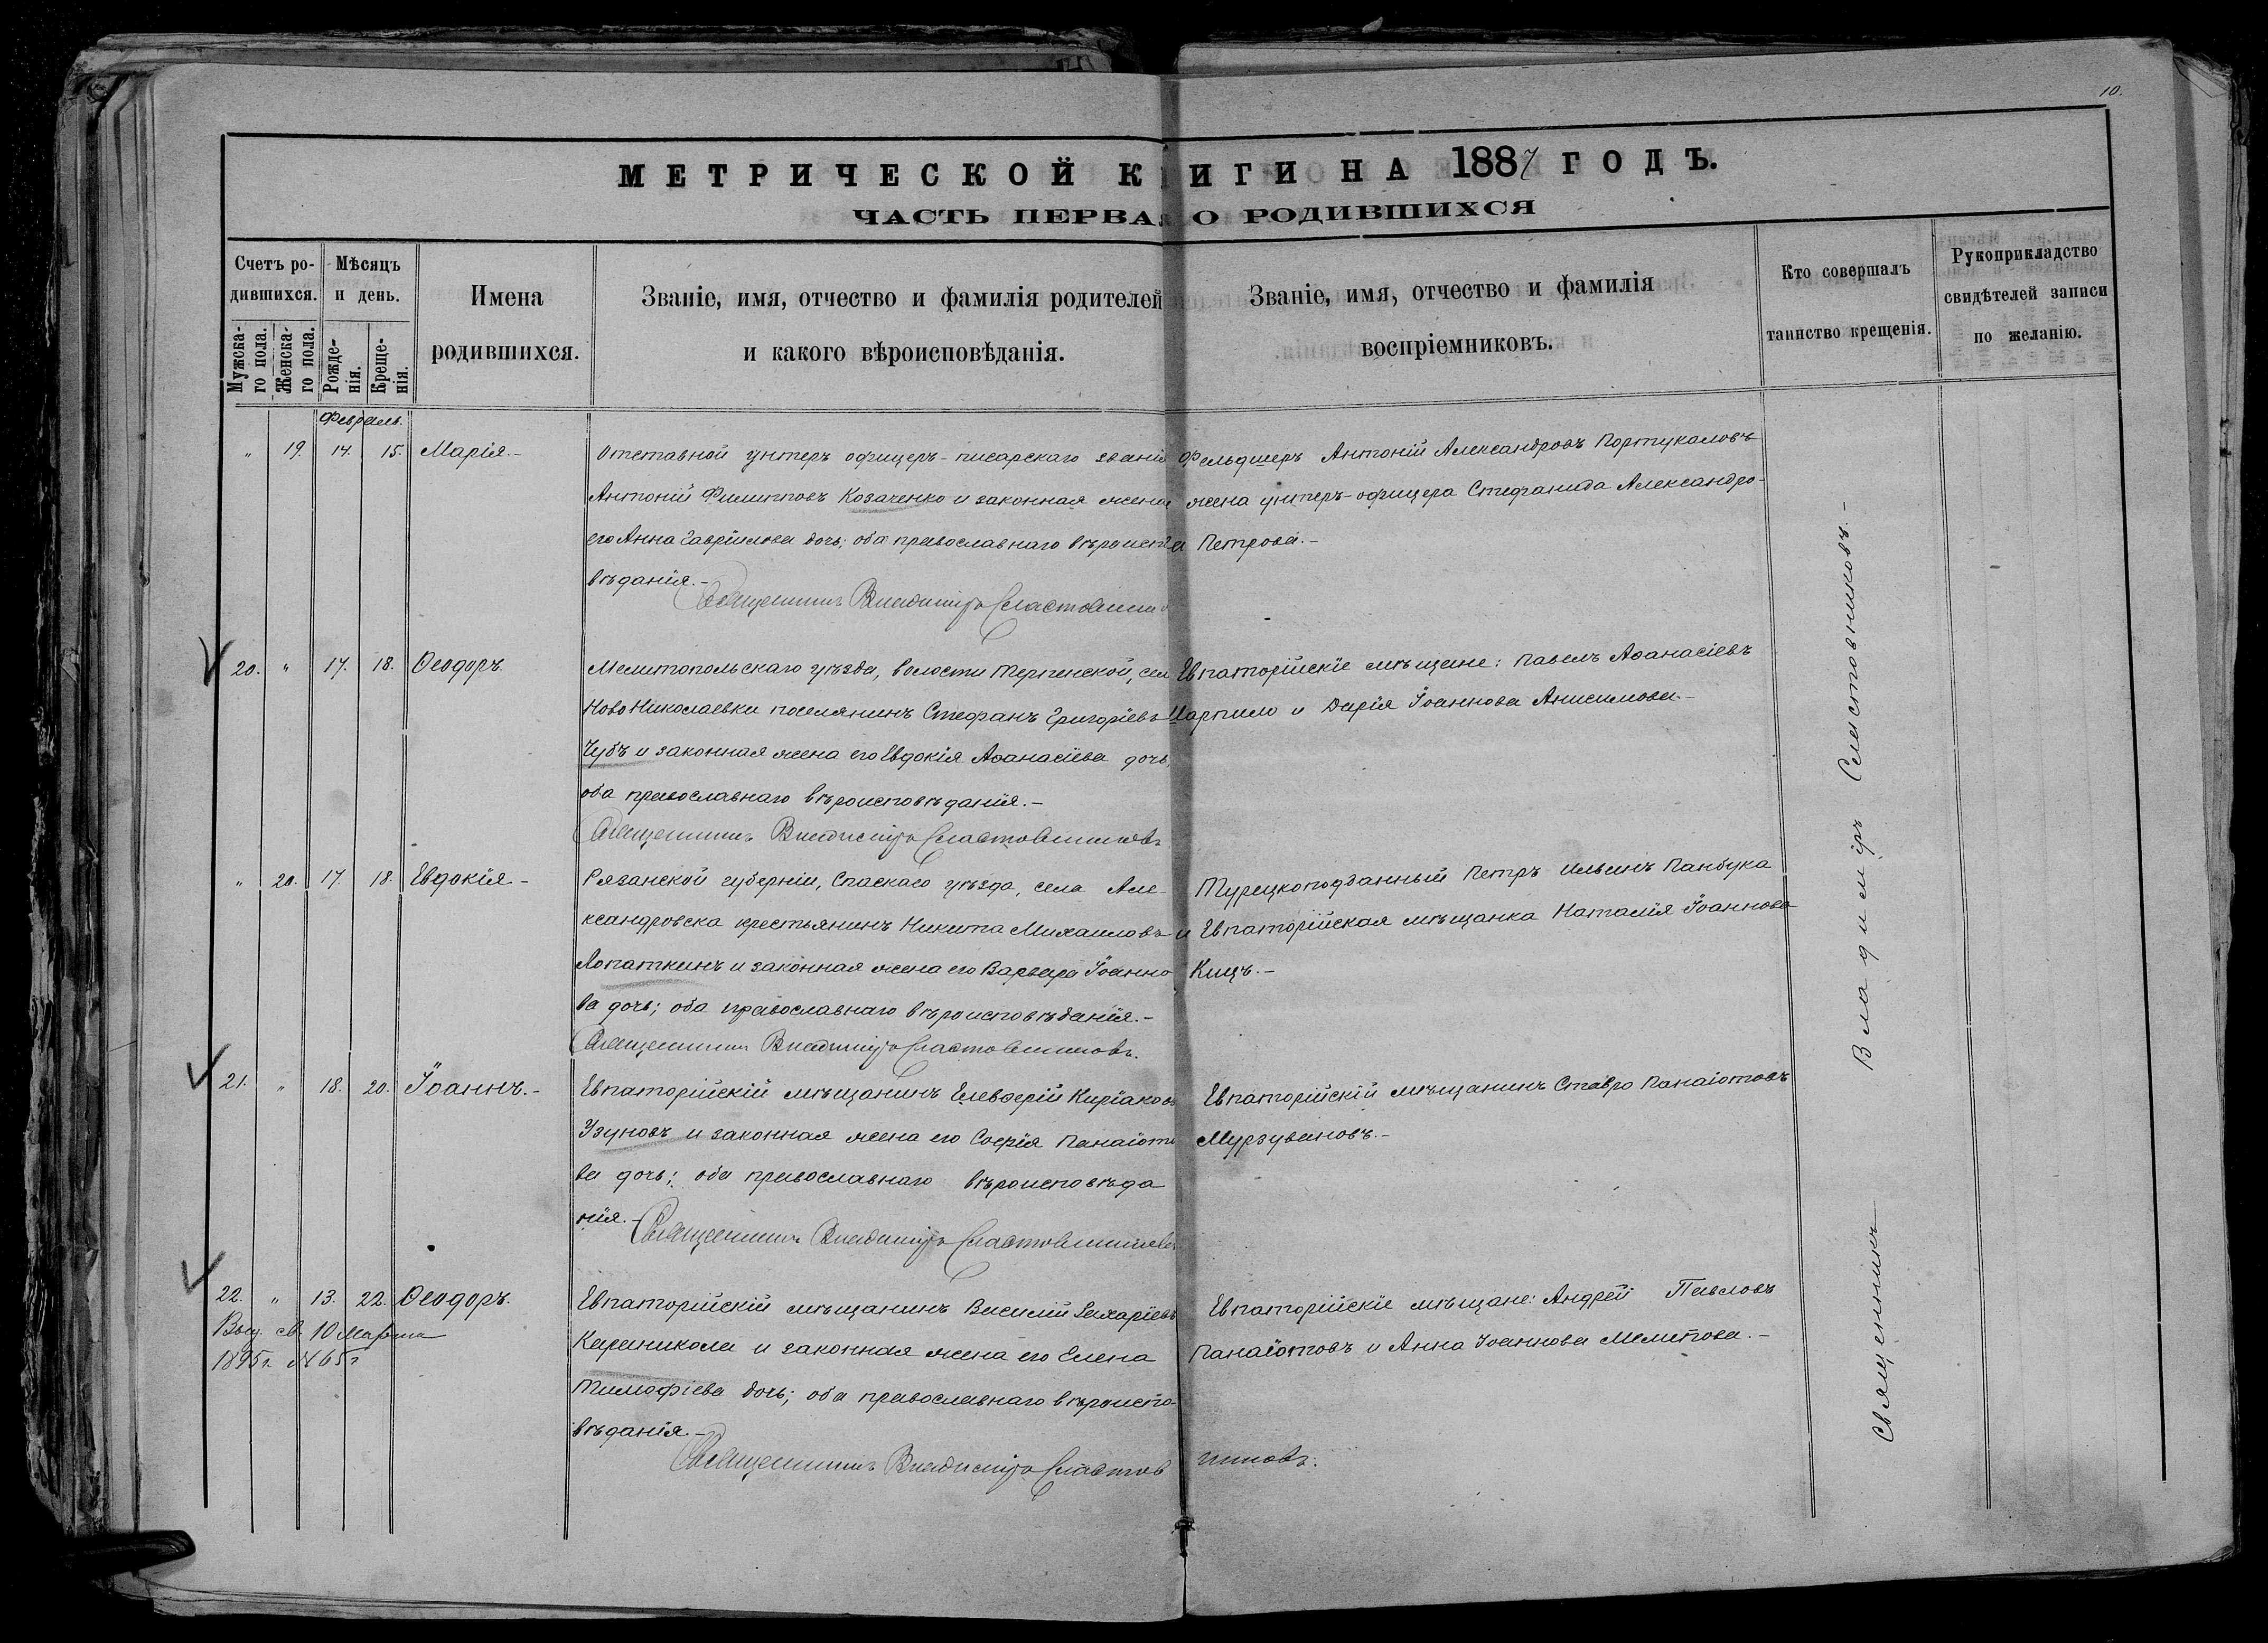 10.
МЕТРИЧЕСКОЙ КНИГИ НА 1887 ГОДЪ.
ЧАСТЬ ПЕРВАЯ О РОДИВШИХСЯ
Счетъ ро-
дившихся.
Мужска-
го пола.
Женска-
го пола.
Мѣсяцъ
и день.
Рожде-
нія.
Креще-
нія.
Имена
родившихся.
Званіе, имя, отчество и фамилія родителей
и какого вѣроисповѣданія.
Званіе, имя, отчество и фамилія
воспріемниковъ.
Кто совершалъ
таинство крещенія.
Рукоприкладство
свидѣтелей записи
по желанію.
Февраль.
" 19. 14. 15. Марія.-
Отставной унтеръ офицеръ-писарскаго званія
Антоній Филипповъ Козаченко и законная жена
его Анна Гавріилова дочь; оба православнаго вѣроиспо
вѣданія.-
Священникъ Владиміръ Сластовниковъ
Фельдшеръ Антоній Александровъ Портукаловъ
жена унтеръ-офицера Стефанида Александро-
ва Петрова.-
20. " 17. 18. Ѳеодоръ.
Мелитопольскаго уѣзда, волости Терпенской, села
Ново Николаевки поселянинъ Стефанъ Григоріевъ
Чубъ и законная жена его Евдокія Аѳанасіева дочь,
оба православнаго вѣроисповѣданія.-
Священникъ Владиміръ Сластовниковъ
Евпаторійскіе мѣщане: Павелъ Аѳанасіевъ
Царпило и Дарія Іоаннова Анисимова.-
" 20. 17. 18. Евдокія-
Рязанской губерніи, Спаскаго уѣзда, села Але-
ксандровска крестьянинъ Никита Михаиловъ
Лопаткинъ и законная жена его Варвара Іоанно
ва дочь; оба православнаго вѣроисповѣданія.-
Священникъ Владиміръ Сластовниковъ.
Турецкоподданный Петръ Ильинъ Панбука
и Евпаторійская мѣщанка Наталія Іоаннова
Кицъ.-
21. " 18. 20. Іоаннъ.-
Евпаторійскій мѣщанинъ Елевѳерій Киріаковъ
Узуновъ и законная жена его Софія Панаіото
ва дочь; оба православнаго вѣроисповѣда
нія.-
Священникъ Владиміръ Сластовниковъ
Евпаторійскій мѣщанинъ Ставро Панаіотовъ
Мурзувановъ.-
22. " 13. 22. Ѳеодоръ.
Выд. св. 10 Марта
1895 г. № 65
Евпаторійскій мѣщанинъ Василій Захаріевъ
Караникола и законная жена его Елена
Тимофіева дочь; оба православнаго вѣроиспо-
вѣданія.-
Священникъ Владиміръ Сластовниковъ.
Евпаторійскіе мѣщане: Андрей Павловъ
Панаіотовъ и Анна Іоаннова Меметова.-
Священникъ Владиміръ Сластовниковъ.-